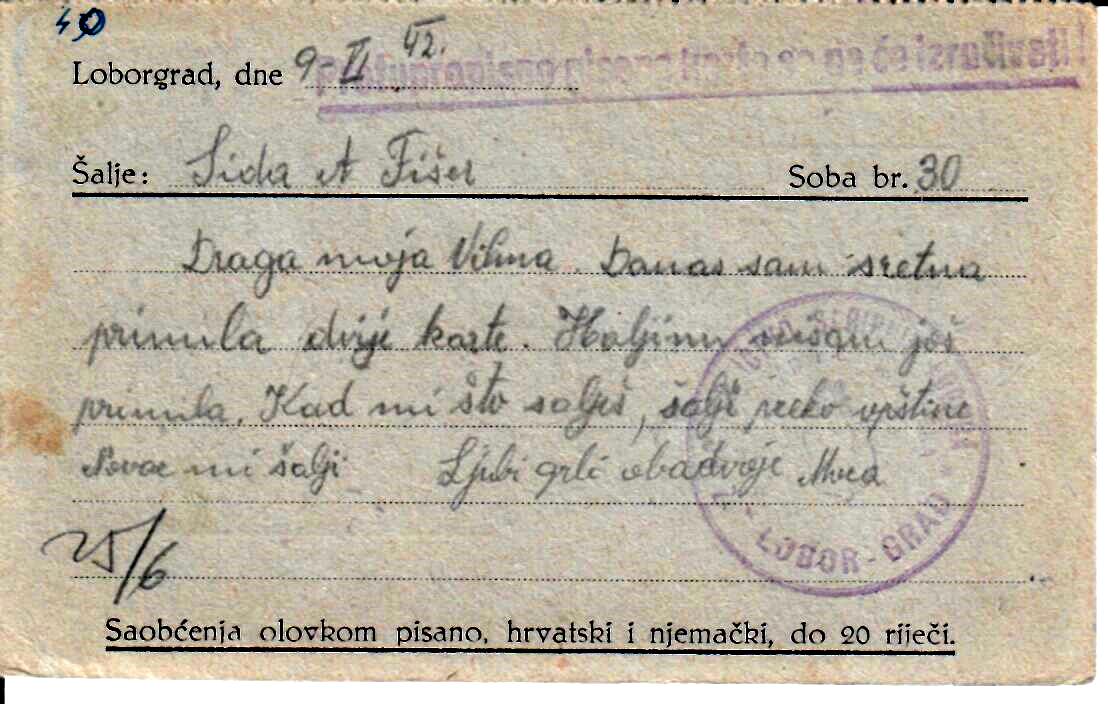 40
Loborgrad, dne 9 II 42.
protupropisno pisane karte se ne će izručivati!
Šalje: Sida A Fišer Soba br. 30
Draga moja Vilma. Danas sam sretna
primila dvije karte. Haljinu nisam još
primila. Kad mi što šalješ, šalji preko opštine
Novac mi šalji Ljubi grli obadvoje
LOBOR-GRAD
25/6
Saobćenja olovkom pisano, hrvatski i njemački, do 20 riječi.